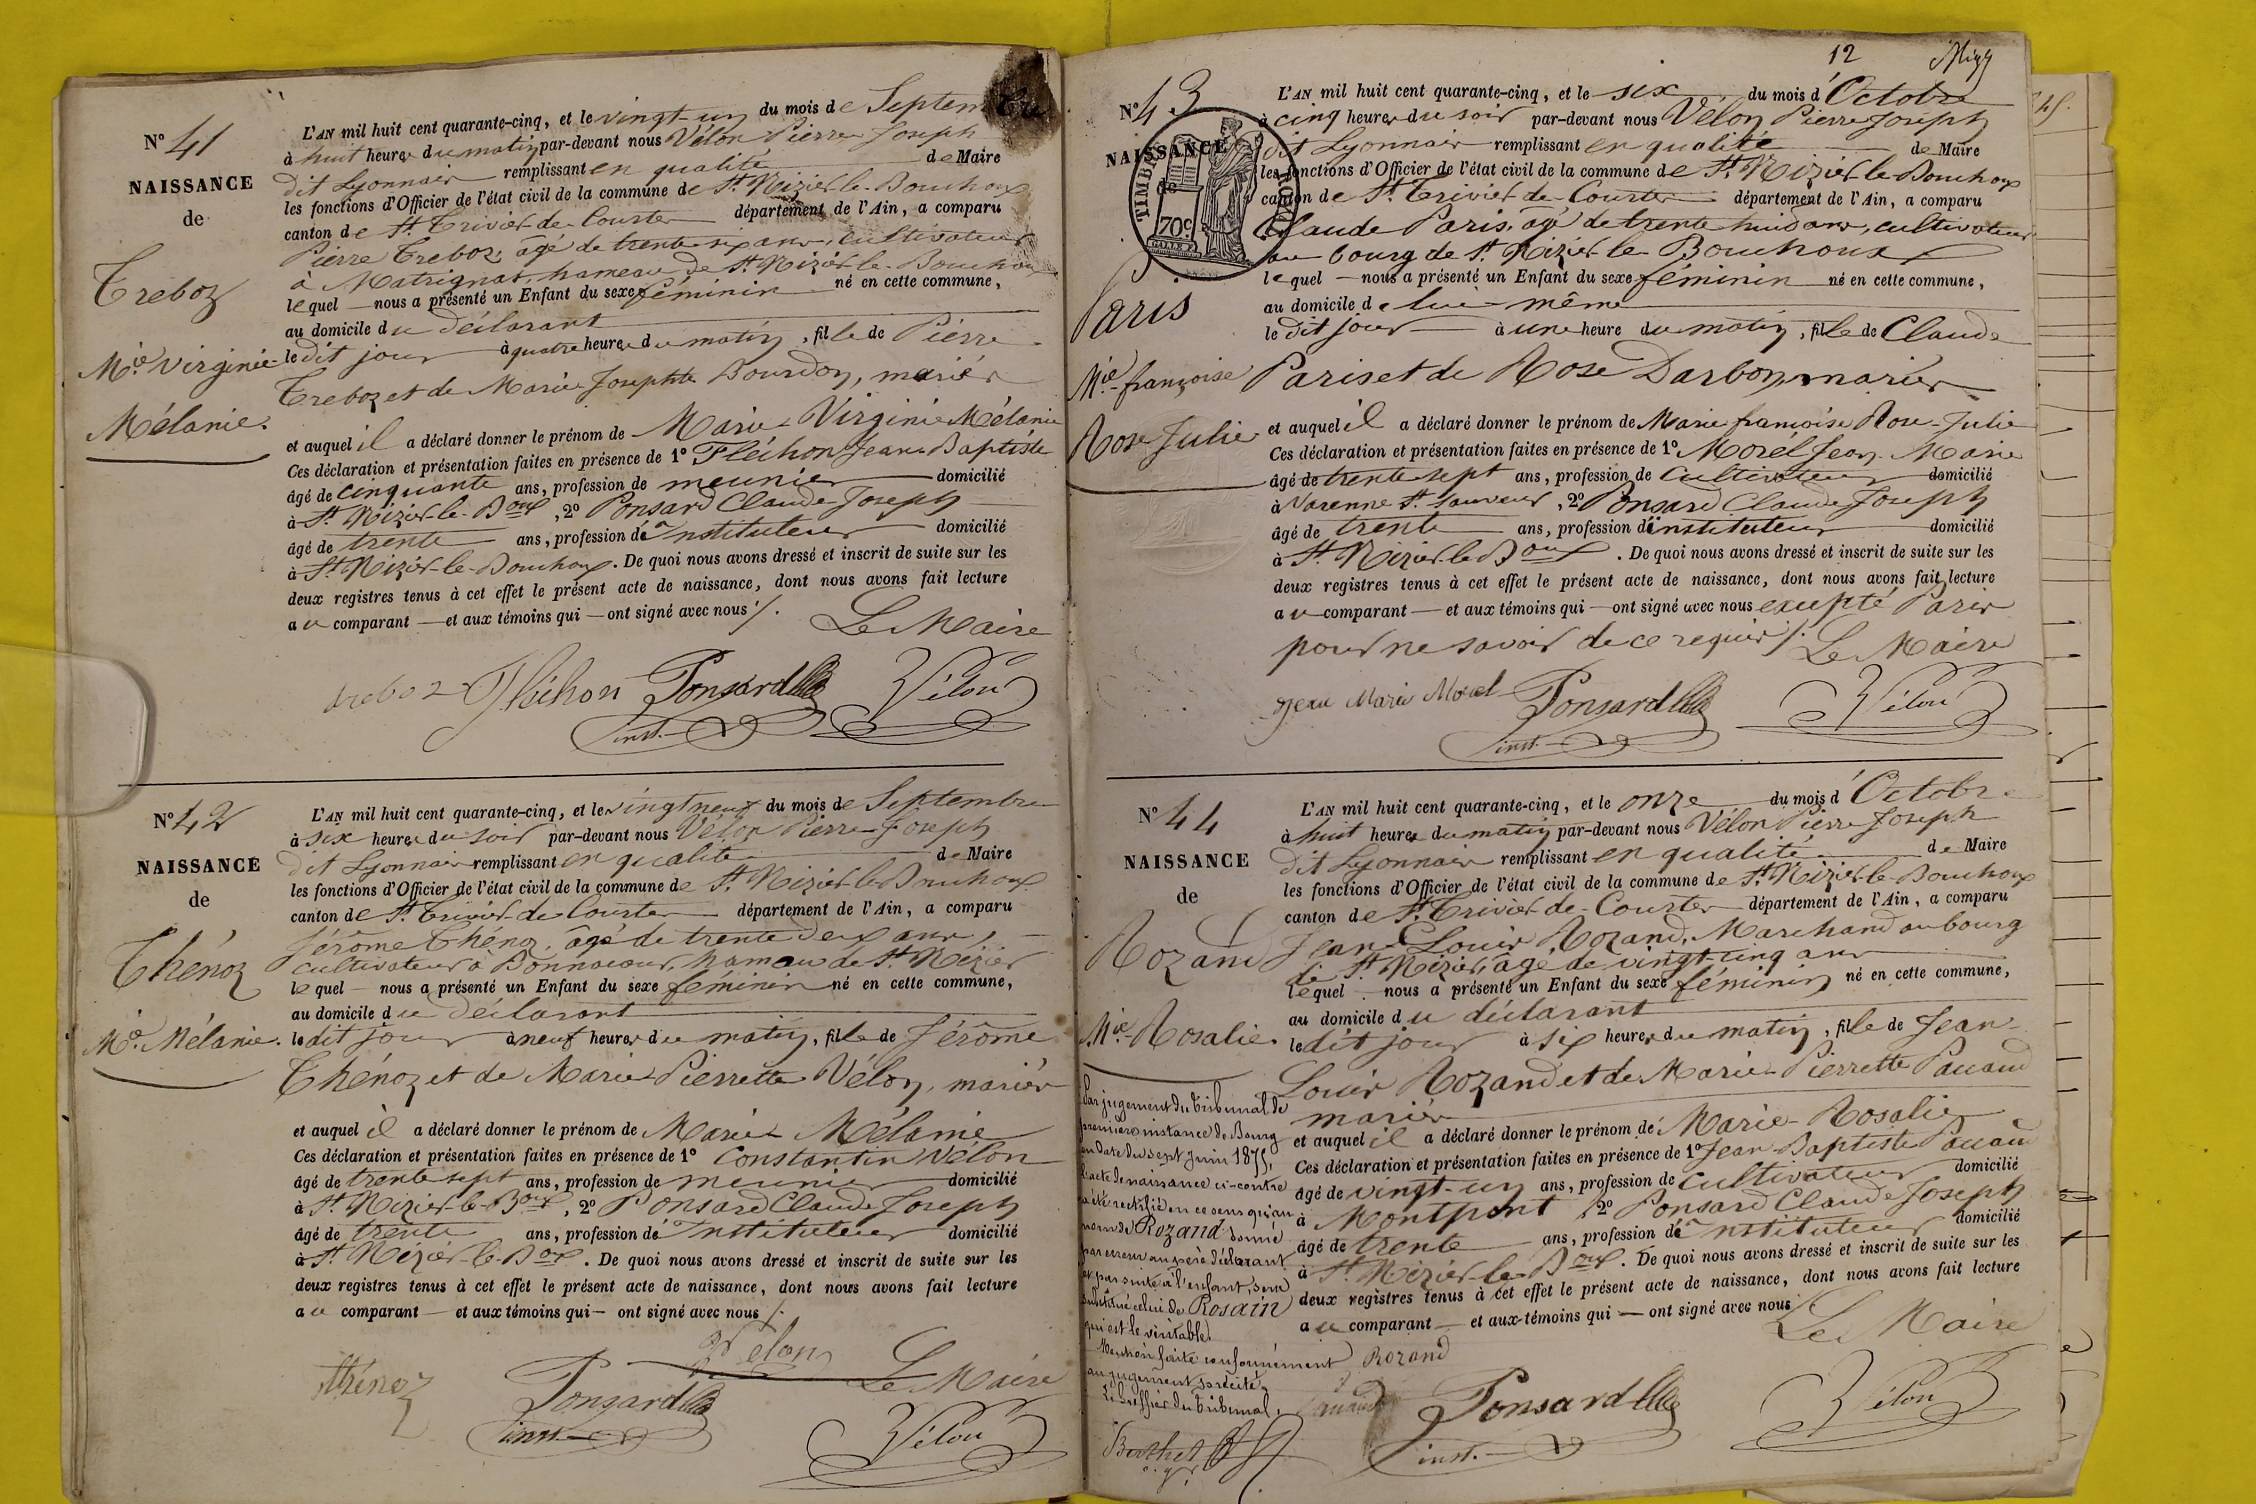 N° 41
NAISSANCE
de
Treboz
M.ie Virginie
Mélanie.
L'AN mil huit cent quarante-cinq, et le vingt-un du mois de Septembre
à huit heures du matin par-devant nous Vélon Pierre Joseph
dit Lyonnais remplissant en qualité de Maire
les fonctions d'Officier de l'état civil de la commune de St. Nizier-le-Bouchoux
canton de St. Trivier-de-Courtes département de l'Ain, a comparu
Pierre Treboz, âgé de trente-six ans, cultivateur
à Matrignat, hameau de St. Nizier-le-Bouchoux
lequel — nous a présenté un Enfant du sexe féminin né en cette commune,
au domicile du déclarant
le dit jour à quatre heures du matin, fille de Pierre
Treboz et de Marie Josephte Bourdon, mariés
et auquel il a déclaré donner le prénom de Marie Virginie Mélanie
Ces déclaration et présentation faites en présence de 1° Fléchon Jean Baptiste
âgé de cinquante ans, profession de meunier domicilié
à St. Nizier-le-Boux, 2° Ponsard Claude Joseph
âgé de trente ans, profession d'instituteur domicilié
à St. Nizier-le-Bouchoux. De quoi nous avons dressé et inscrit de suite sur les
deux registres tenus à cet effet le présent acte de naissance, dont nous avons fait lecture
au comparant — et aux témoins qui — ont signé avec nous /.
Le Maire
treboz Fléchon Ponsard Vélon
inst.
N° 42
NAISSANCE
de
Thénoz
M.ie Mélanie.
L'AN mil huit cent quarante-cinq, et le vingt neuf du mois de Septembre
à six heures du soir par-devant nous Vélon Pierre Joseph
dit Lyonnais remplissant en qualité de Maire
les fonctions d'Officier de l'état civil de la commune de St. Nizier-le-Bouchoux
canton de St. Trivier-de-Courtes département de l'Ain, a comparu
Jérôme Thénoz, âgé de trente deux ans,
cultivateur à Bonnacour, hameau de St. Nizier
lequel — nous a présenté un Enfant du sexe féminin né en cette commune,
au domicile du déclarant
le dit jour à neuf heures du matin, fille de Jérôme
Thénoz et de Marie Pierrette Vélon, mariés
et auquel il a déclaré donner le prénom de Marie Mélanie
Ces déclaration et présentation faites en présence de 1° Constantin Vélon
âgé de trente sept ans, profession de meunier domicilié
à St. Nizier-le-Boux, 2° Ponsard Claude Joseph
âgé de trente ans, profession d'instituteur domicilié
à St. Nizier-le-Boux. De quoi nous avons dressé et inscrit de suite sur les
deux registres tenus à cet effet le présent acte de naissance, dont nous avons fait lecture
au comparant — et aux témoins qui — ont signé avec nous /.
Velon Le Maire
thénoz Ponsard Vélon
inst.
12
N° 43
NAISSANCE
de
TIMBRE
70c
Paris
M.ie françoise
Rose Julie
L'AN mil huit cent quarante-cinq, et le six du mois d'Octobre
à cinq heures du soir par-devant nous Vélon Pierre Joseph
dit Lyonnais remplissant en qualité de Maire
les fonctions d'Officier de l'état civil de la commune de St. Nizier-le-Bouchoux
canton de St. Trivier-de-Courtes département de l'Ain, a comparu
Claude Paris, âgé de trente huit ans, cultivateur
au bourg de St. Nizier-le-Bouchoux
lequel — nous a présenté un Enfant du sexe féminin né en cette commune,
au domicile de lui-même
le dit jour à une heure du matin, fille de Claude
Paris et de Rose Darbon, mariés
et auquel il a déclaré donner le prénom de Marie françoise Rose-Julie
Ces déclaration et présentation faites en présence de 1° Morel Jean Marie
âgé de trente sept ans, profession de cultivateur domicilié
à Varenne St. Sauveur, 2° Ponsard Claude Joseph
âgé de trente ans, profession d'instituteur domicilié
à St. Nizier-le-Boux. De quoi nous avons dressé et inscrit de suite sur les
deux registres tenus à cet effet le présent acte de naissance, dont nous avons fait lecture
au comparant — et aux témoins qui — ont signé avec nous excepté Paris
pour ne savoir de ce requis /. Le Maire
Jean Marie Morel Ponsard Vélon
inst.
N° 44
NAISSANCE
de
Rozand
M.ie Rosalie.
L'AN mil huit cent quarante-cinq, et le onze du mois d'Octobre
à huit heures du matin par-devant nous Vélon Pierre Joseph
dit Lyonnais remplissant en qualité de Maire
les fonctions d'Officier de l'état civil de la commune de St. Nizier-le-Bouchoux
canton de St. Trivier-de-Courtes département de l'Ain, a comparu
Jean Louis Rozand, Marchand au bourg
de St. Nizier, âgé de vingt-cinq ans
lequel — nous a présenté un Enfant du sexe féminin né en cette commune,
au domicile du déclarant
le dit jour à six heures du matin, fille de Jean-
Louis Rozand et de Marie Pierrette Pauaud
mariés
et auquel il a déclaré donner le prénom de Marie-Rosalie
Ces déclaration et présentation faites en présence de 1° Jean Baptiste Pauaud
âgé de vingt-un ans, profession de cultivateur domicilié
à Montpont, 2° Ponsard Claude Joseph
âgé de trente ans, profession d'instituteur domicilié
à St. Nizier-le-Boux. De quoi nous avons dressé et inscrit de suite sur les
deux registres tenus à cet effet le présent acte de naissance, dont nous avons fait lecture
au comparant — et aux témoins qui — ont signé avec nous
Le Maire
Rozand
Ponsard Vélon
inst.
Par jugement du Tribunal de
première instance de Bourg
en date du sept Juin 1875,
l'acte de naissance ci-contre
a été rectifié en ce sens qu'au
nom de Rozand donné
par erreur au père déclarant
et par suite à l'enfant, sera
substitué celui de Rosain
qui est le véritable.
Mention faite conformément
au jugement précité.
Le Greffier du Tribunal,
Berthet